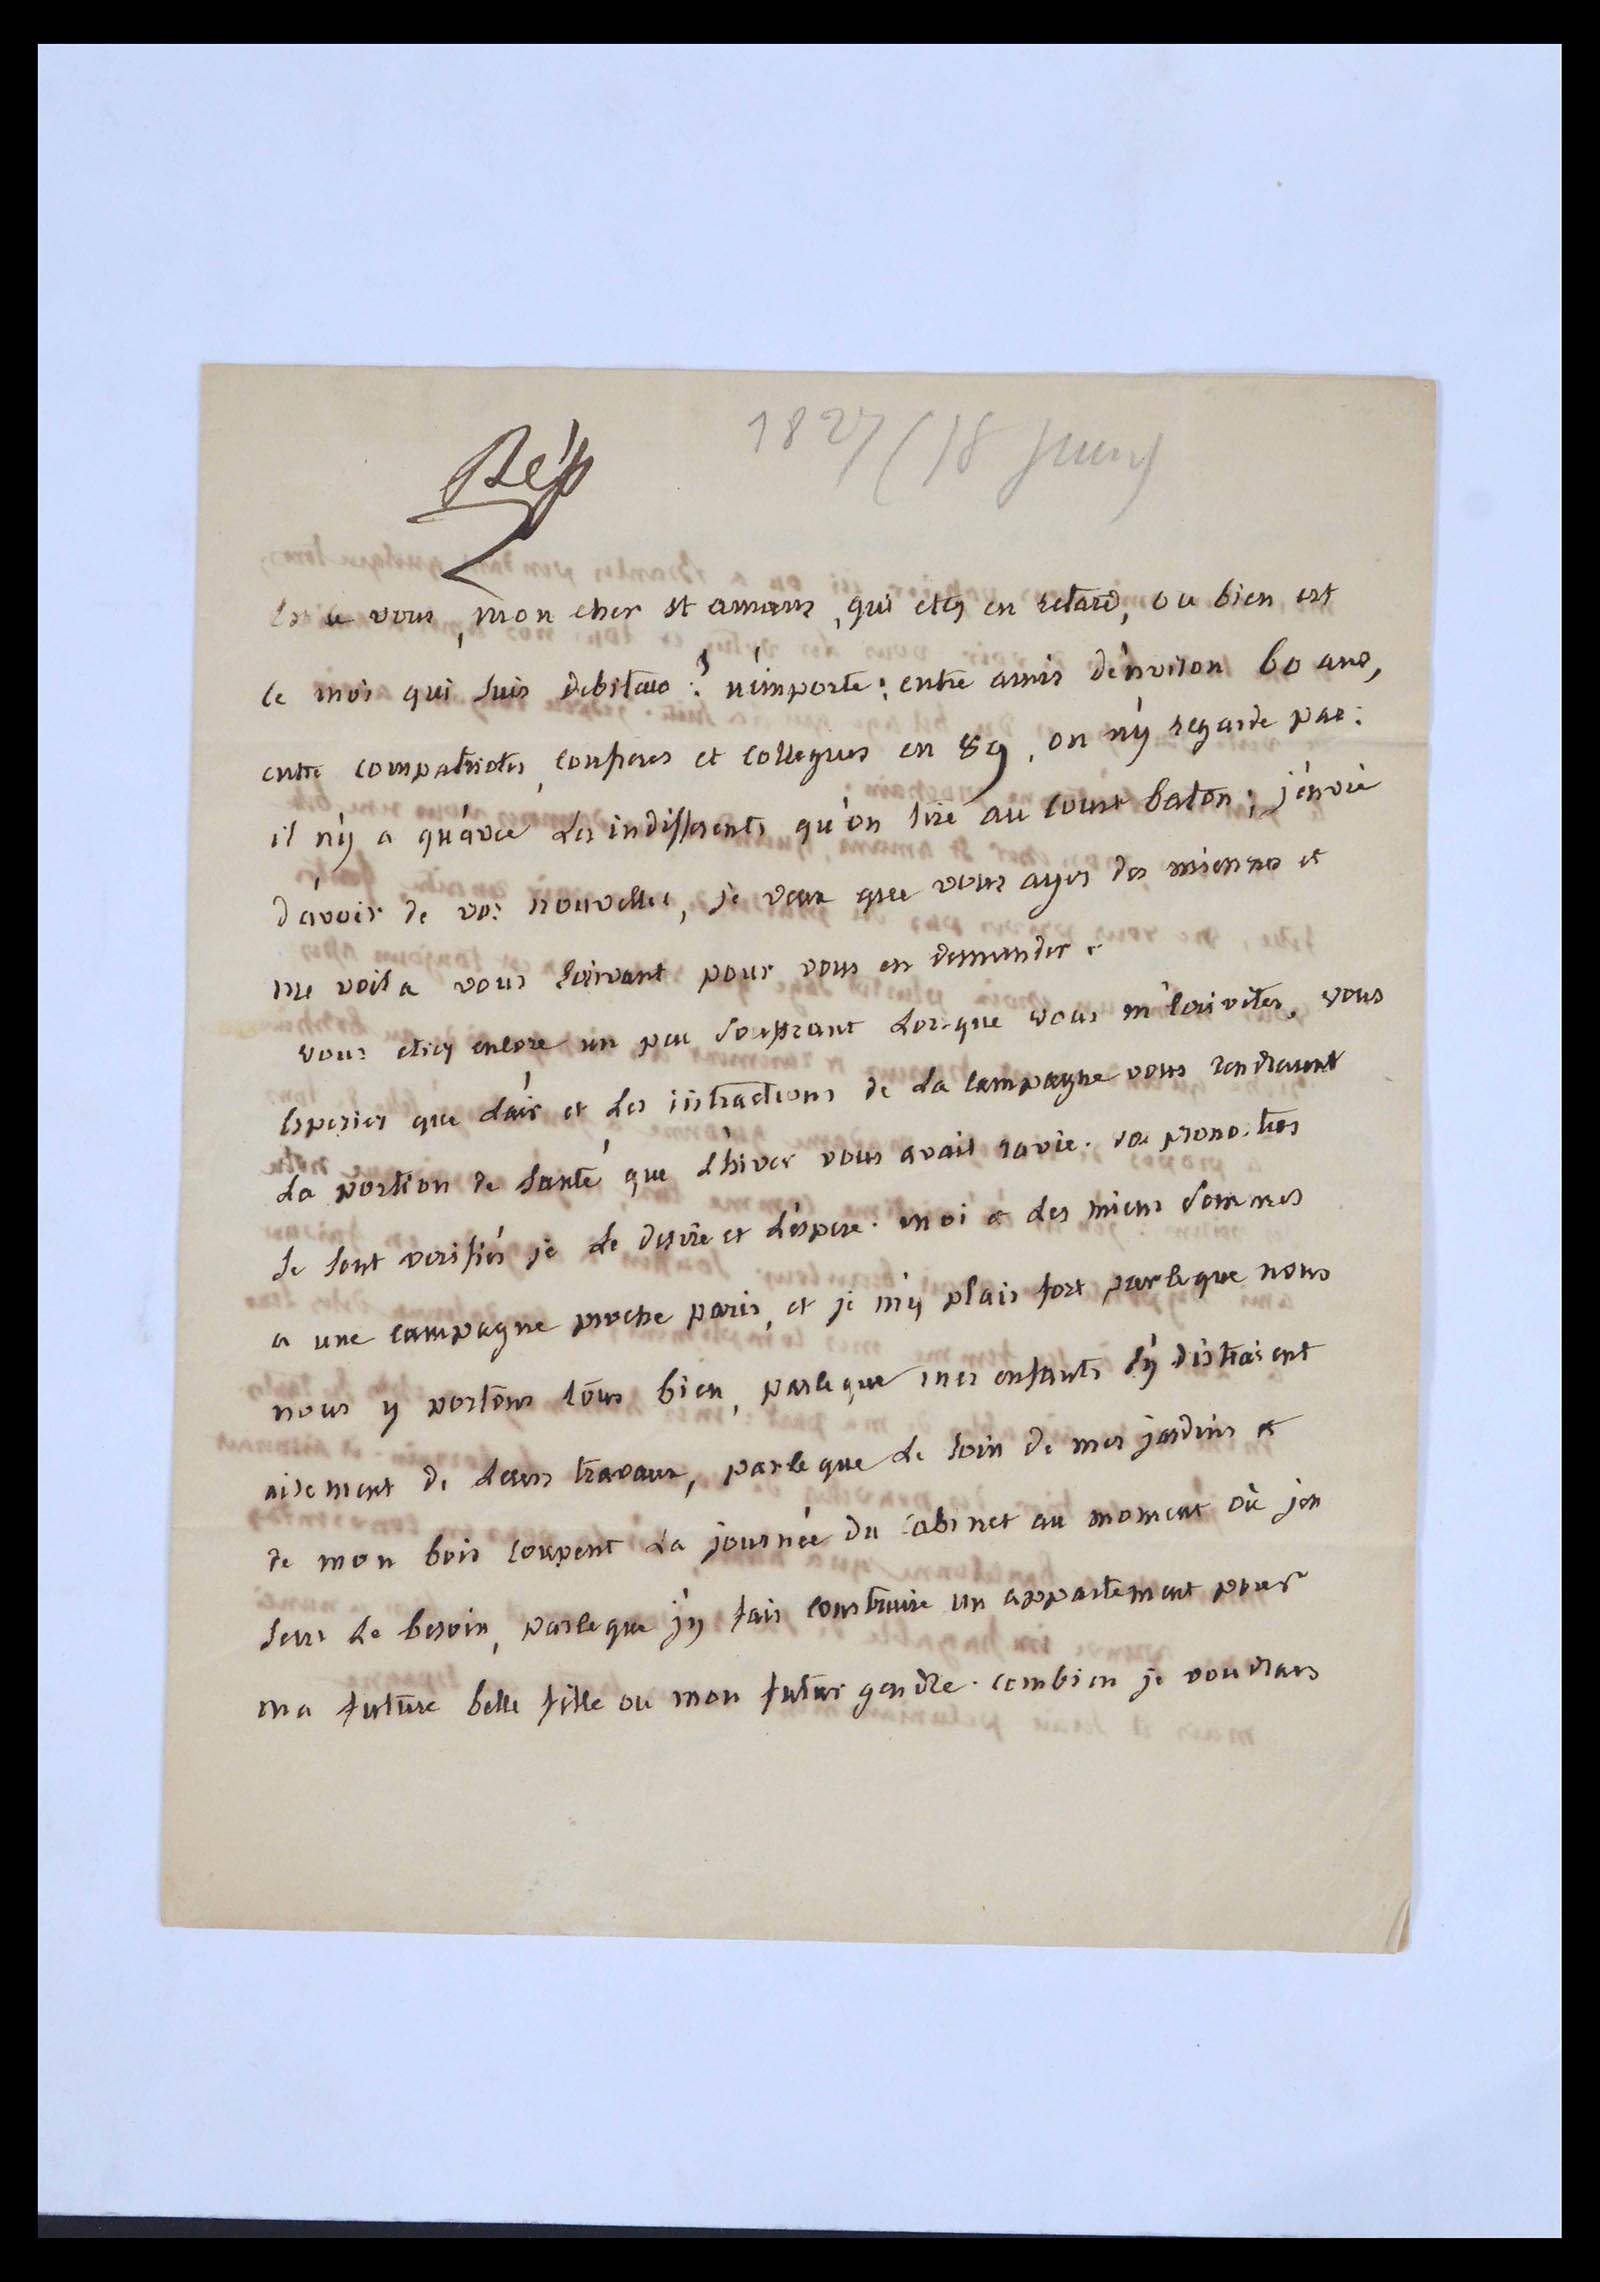 Rép
1827 (18 juin)
Es ce vous, mon cher st amans, qui etes en retard, ou bien est
ce moi qui suis debiteur? n'importe: entre amis d'environ 60 ans,
entre compatriotes, confreres et collegues en 89, on n'y regarde pas:
il n'y a qu'avec des indifferents qu'on tire au court baton; j'envie
d'avoir de vos nouvelles, je veux que vous ayes des miennes et
me voila vous ecrivant pour vous en demander.
vous etiez encore un peu souffrant lorsque vous m'ecrivites. vous
esperiez que l'air et les distractions de la campagne vous rendraient
la portion de santé que l'hiver vous avait ravie. vos pronostics
se sont verifiés je le desire et l'espere. moi et les miens sommes
a une campagne proche paris, et je m'y plais fort parceque nous
nous y portons tous bien, parceque mes enfants s'y distraient
aisement de leurs travaux, parceque le soin de mes jardins et
de mon bois coupent la journée du cabinet au moment où j'en
sens le besoin, parceque j'y fais construire un appartement pour
ma future belle fille ou mon futur gendre. combien je voudrais